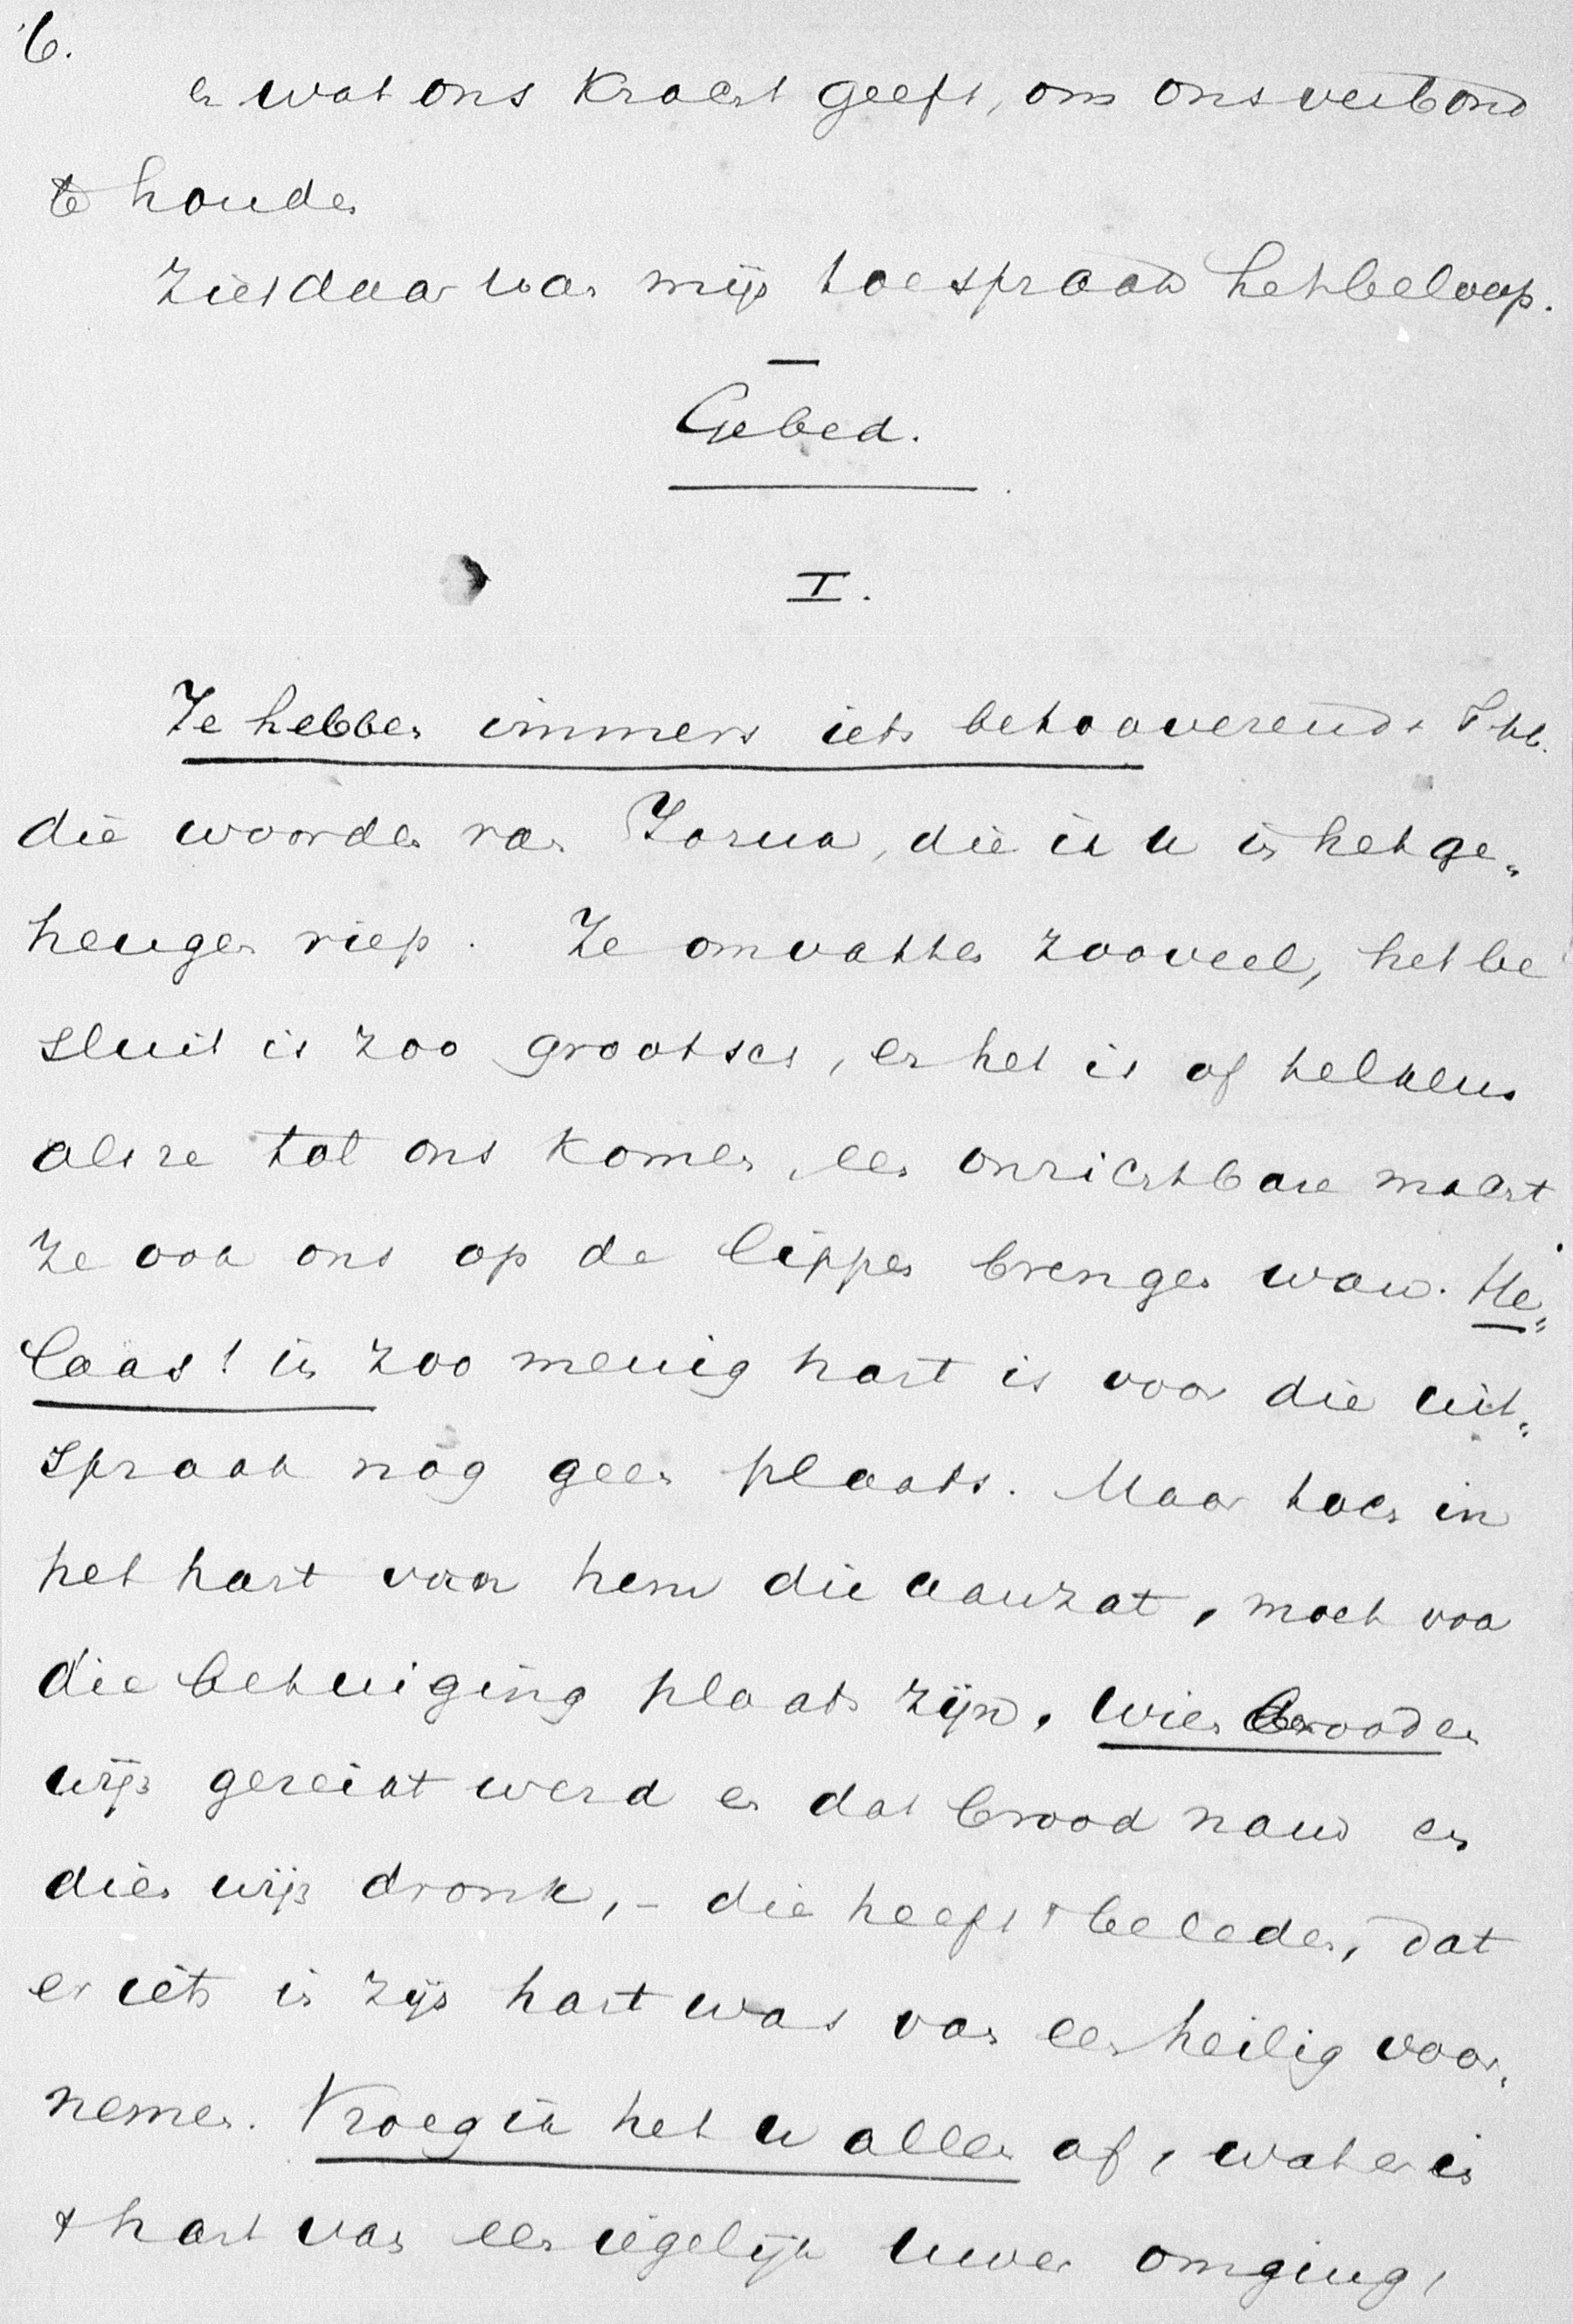 6.
en wat ons kracht geeft, om ons verbond
te houden
Ziet daar van mijn toespraak het beloop.
—
Gebed.
I.
Ze hebben immers iets betooverends Thl.
die woorden van Jozua, die ik u in het ge„
heugen riep. Ze omvatten zooveel, het be
sluit is zoo grootsch, en het is of telkens
als ze tot ons komen, een onzichtbare macht
ze ook ons op de lippen brengen wou. He„
laas! in zoo menig hart is voor die uit„
spraak nog geen plaats. Maar toch in
het hart van hem die aanzat, moet voor
die betuiging plaats zijn. Wien brood en
wijn gereikt werd en dat brood nam en
dien wijn dronk, – die heeft beleden, dat
er iets in zijn hart was van een heilig voor„
nemen. Vroeg ik het u allen af, wat er in
't hart van een iegelijk uwer omging,